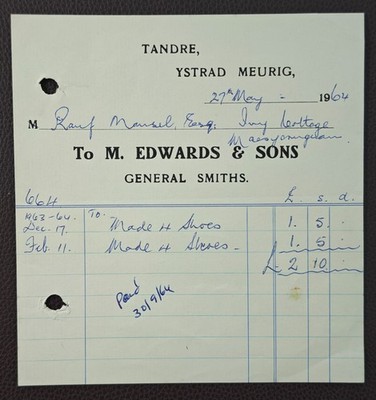 TANDRE,
YSTRAD MEURIG,
27th May - 1964
M Rauf Mansel, Esq; Ivy Cottage
To M. EDWARDS & SONS
GENERAL SMITHS.
664 £. s. d.
1963-64. To.
Dec. 17. Made 4 Shoes 1. 5.
Feb. 11. Made 4 Shoes - 1. 5
£ 2 10
Paid
30/9/64